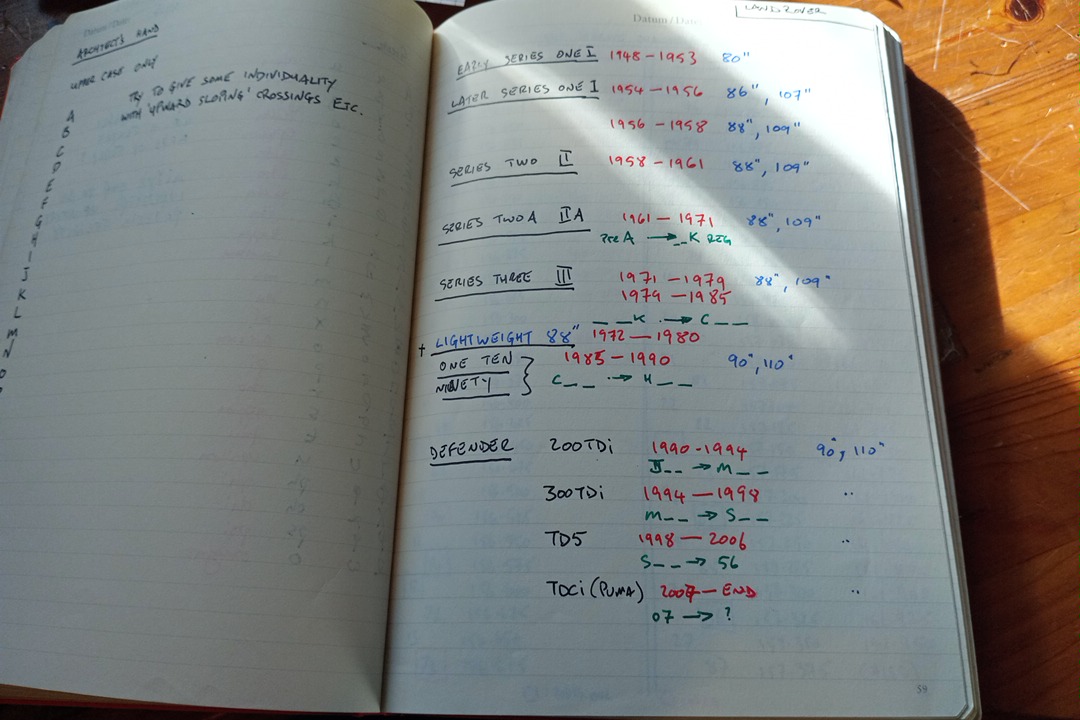 Datum / Date
ARCHITECT'S HAND
UPPER CASE ONLY
TRY TO GIVE SOME INDIVIDUALITY
WITH 'UPWARD SLOPING' CROSSINGS ETC.
A
B
C
D
E
F
G
H
I
J
K
L
M
N
O
P
Datum / Date
LAND ROVER
EARLY SERIES ONE I 1948 - 1953 80"
LATER SERIES ONE I 1954 - 1956 86", 107"
1956 - 1958 88", 109"
SERIES TWO II 1958 - 1961 88", 109"
SERIES TWO A IIA 1961 - 1971 88", 109"
PRE A → __K REG
SERIES THREE III 1971 - 1979 88", 109"
1979 - 1985
_ _K → C _ _
+ LIGHTWEIGHT 88" 1972 - 1980
ONE TEN 1985 - 1990 90", 110"
NINETY C _ _ → H _ _
DEFENDER 200TDi 1990 - 1994 90", 110"
_ _ → M _ _
300TDi 1994 - 1998 ..
M _ _ → S _ _
TD5 1998 - 2006 ..
S _ _ → 56
TDCi (PUMA) 2007 - END ..
07 → ?
59